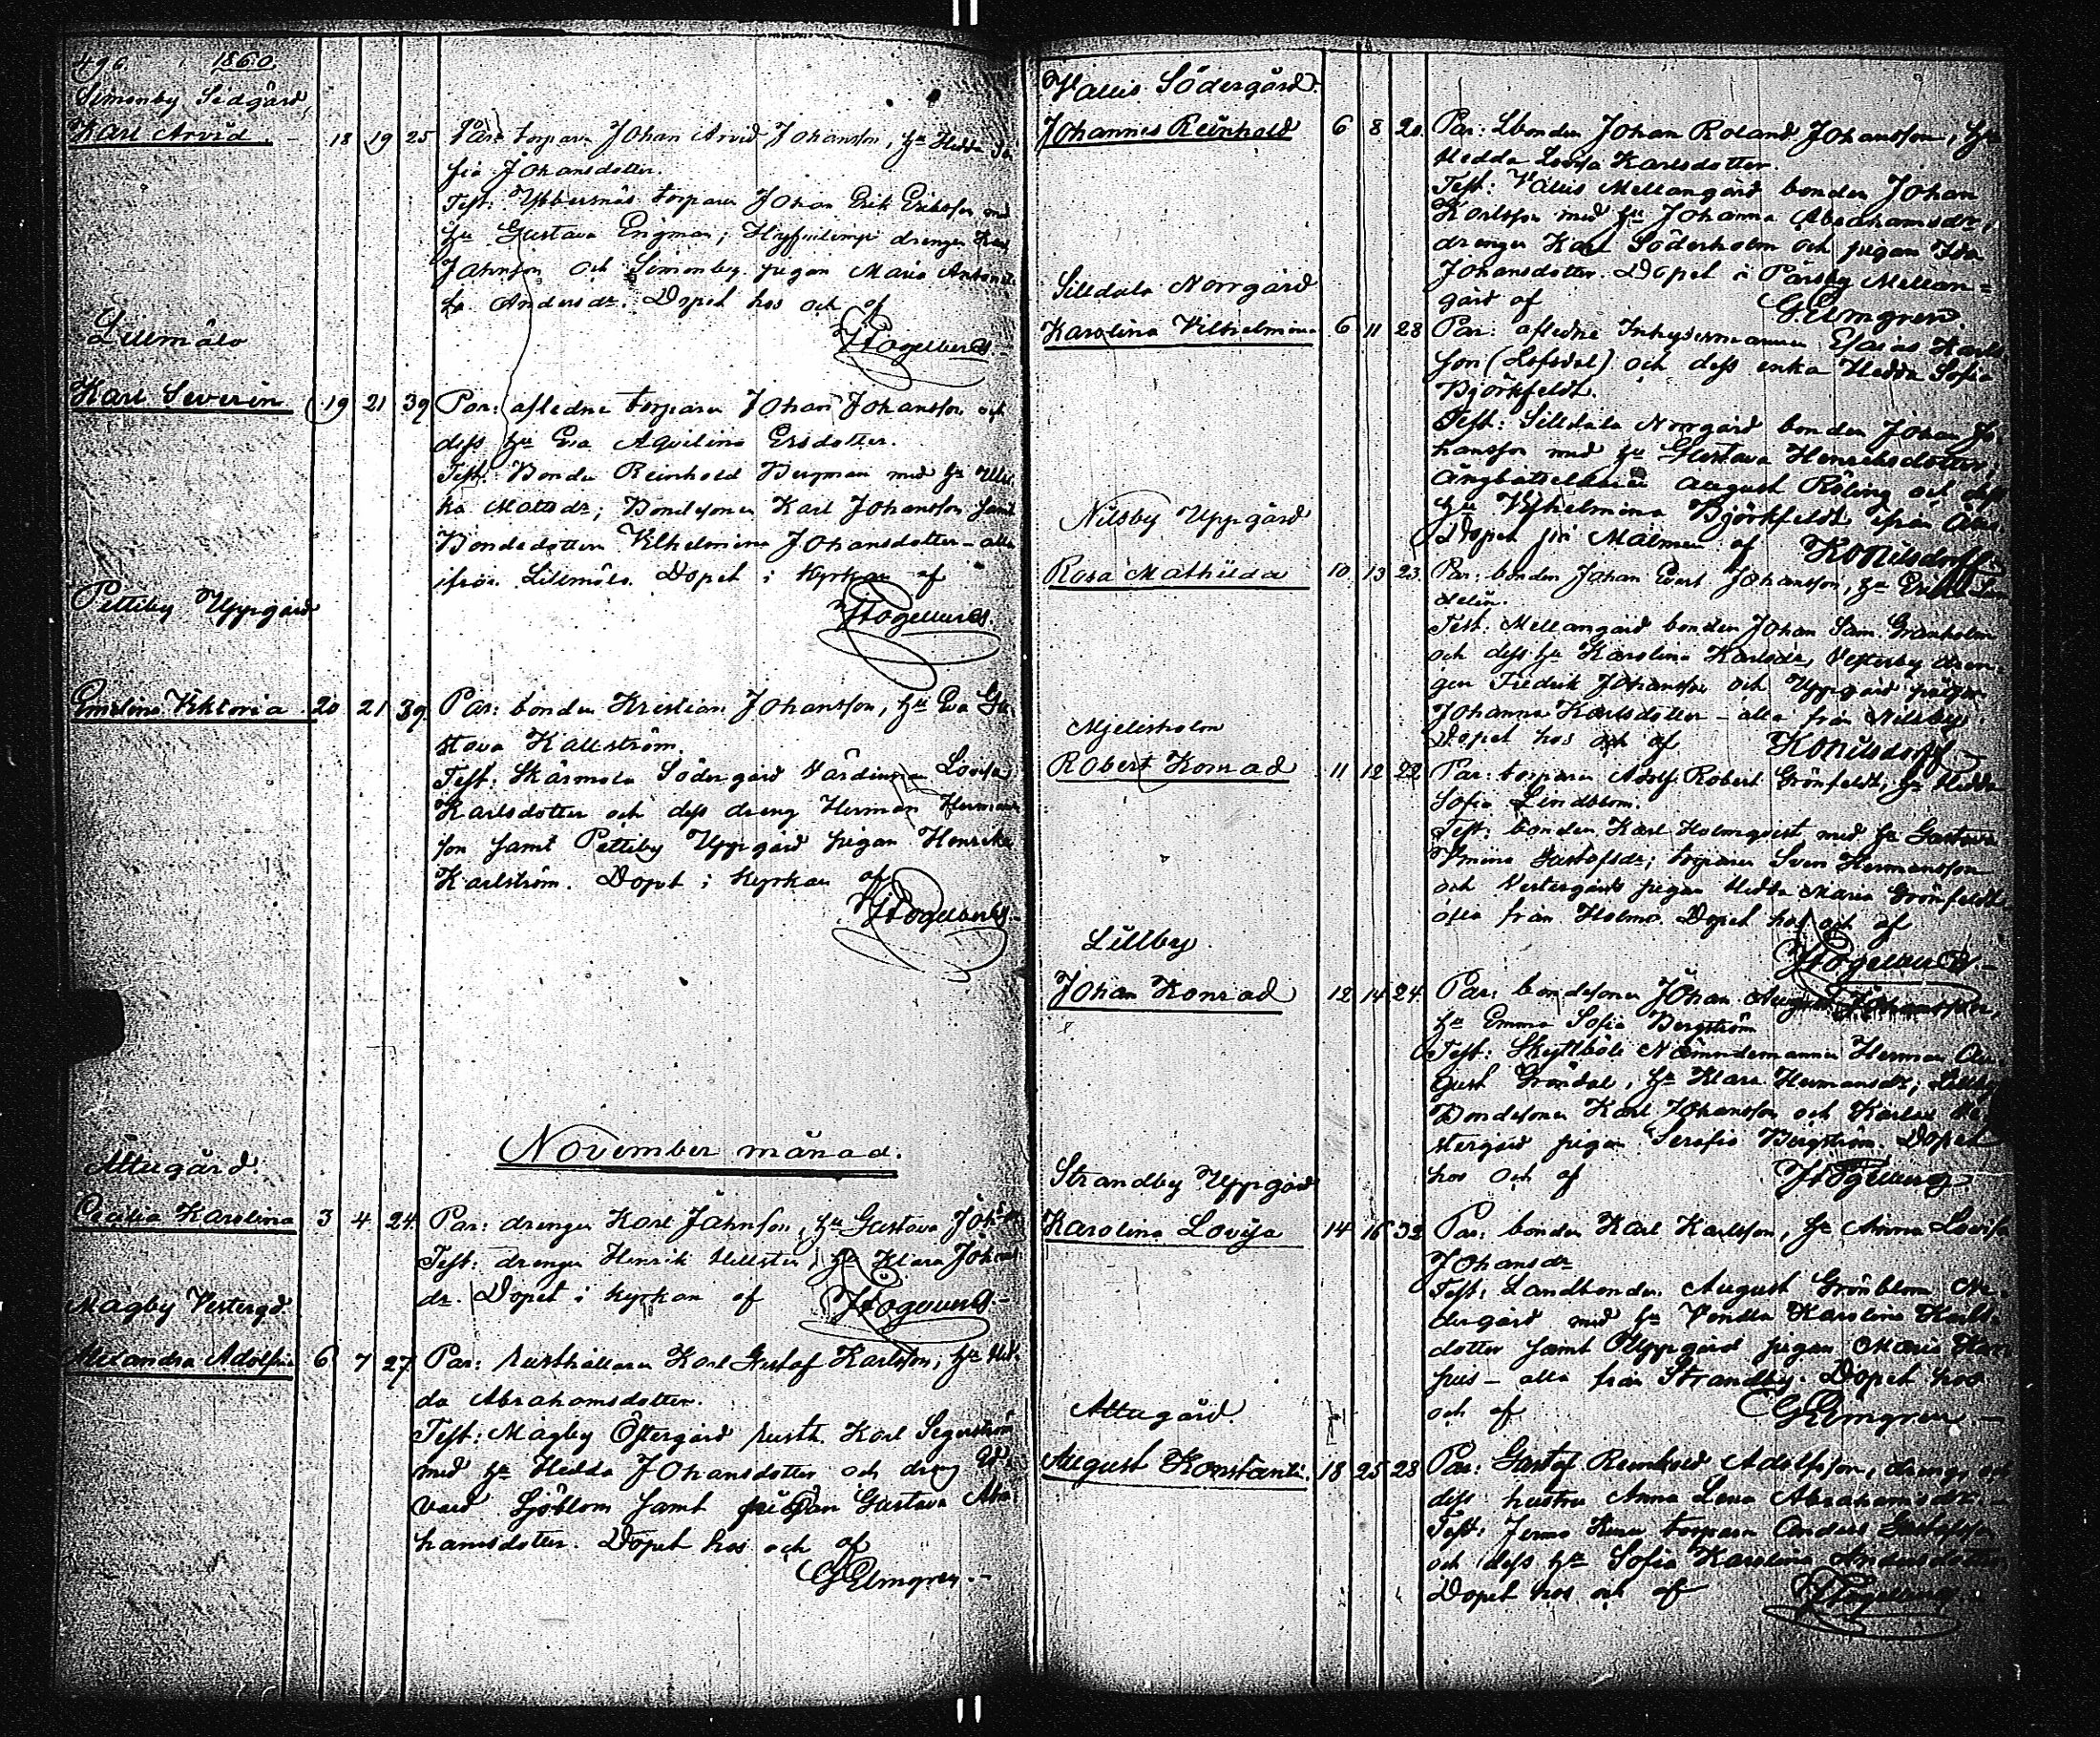 496. 1860
Simonby Sidgård,
Karl Arvid 18 19 25 Par: torparn Johan Arvid Johansson, hu Hedda So
fia Johansdotter.
Test: Ybbersnäs torparn Johan Erik Eriksson med
hu Gustava Engman; drengen Karl
Jahnson och Simonby pigan Maria Antonet
ta Andersdr. Dopet hos och af
Lillmälö
Karl Severin 19 21 39 Par: afledne torparn Johan Johansson och
dess hu Eva Aqvilina Ersdotter.
Test: Bonden Reinhold Bergman med hu Ulri
ka Matsdr; Bondesonen Karl Johansson samt
Bondedottern Vilhelmina Johansdotter - alla
ifrån Lillmälö. Dopet i Kyrkan af
Pettiby Uppgård
Emelina Viktoria 20 21 39 Par: bonden Kristian Johansson, hu Eva Gu
stava Källström.
Test: Skärmola Södergård Värdinnan Lovisa
Karlsdotter och dess dreng Herman Hermans
son samt Pettiby Uppgård pigan Henrika
Karlström. Dopet i Kyrkan af
November månad.
Attugård.
Cecilia Karolina 3 4 24 Par: drengen Karl Jahnson, hu Gustava Joh
Test: drengen Henrik Hellsten, hu Klara Johans
dr. Dopet i kyrkan af
Mågby Vestergd
Alexandra Adolfina 6 7 27 Par: rusthållarn Karl Gustaf Karlsson, hu Hed
da Abrahamsdotter.
Test: Mågby Östergård rusth. Karl Segerström
med hu Hedda Johansdotter och dreng Ed
vard Sjöblom samt pigan Gustava Abra
hamsdotter. Dopet hos och af
G Elmgren.-
Vallis Södergård.
Johannes Reinhold 6 8 20 Par: Lbonden Johan Roland Johansson, hu
Hedda Lovisa Karlsdotter.
Test: Vallis Mellangård bonden Johan
Karlsson med hu Johanna Abrahamsdr,
drengen Karl Söderholm och pigan Ida
Johansdotter. Dopet i Pärsby Mellan=
gård af G. Elmgren.
Silldala Norrgård
Karolina Vilhelmina 6 11 28 Par: afledne Inhysesmannen Esaias Karls
son (Lofsdal) och dess enka Hedda Sofia
Björkfeldt.
Test: Silldala Norrgård bonden Johan Jo
hansson med hu Gustava Henriksdotter;
August Röling och dess
hu Vilhelmina Björkfeldt ifrån Åbo.
Dopet på Malmen af KONilsdorff
Nilsby Uppgård
Rosa Mathilda 10 13 23 Par: bonden Johan Evert Johansson, hu
delin.
Test: Mellangård bonden Johan Sam. Granholm
och dess hu Karolina Karlsdr, Vesterby dren-
gen Fredrik Johansson och Uppgård pigan
Johanna Karlsdotter - alla från Nilsby.
Dopet hos och af KONilsdorff
Mjelisholm
Robert Konrad 11 12 22 Par: torparen Adolf Robert Grönfeldt, hu Hedda
Sofia Lindblom.
Test: bonden Karl Holmqvist med hu Gustava
Vmina Gustafsdr; torparen Sven Hermansson
och Vestergårds pigan Hedda Maria Grönfeldt
alla från Holmo. Dopet hos och af
Lillby
Johan Konrad 12 14 24 Par: bondesonen Johan August Johansson,
hu Emma Sofia Bergström
Test: Skyttböle Nämndemannen Herman Au
gust Gröndal, hu Klara Hermansdr; Lillby
Bondesonen Karl Johansson och
stergård pigan Serafia Bergström. Dopet
hos och af
Strandby Uppgård
Karolina Lovisa 14 16 32 Par: bonden Karl Karlsson, hu Anna Lovisa
Johansdr
Test: Landbonden August Grönblom Ne
dergård med hu Vendla Karolina Karls-
dotter samt Uppgård pigan Maria
- alla från Strandby. Dopet hos
och af G Elmgren -
Attugård.
August Konstantin 18 25 28 Par: Gustaf Reinhold Adolfsson, dreng, och
dess hustru Anna Lena Abrahamsdr. -
Test: torparn Anders Gustafsson
och dess hu Sofia Karolina Andersdotter.
Dopet hos och af